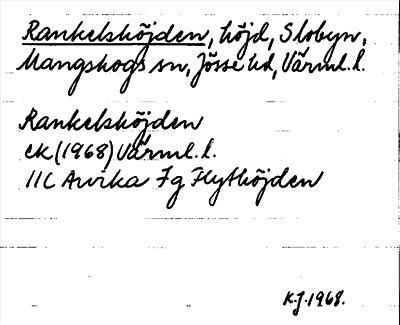 Rankelshöjden, höjd, Slobyn,
Mangskogs sn, Jösse hd, Värml. l.
Rankelshöjden
ek (1968) Värml. l.
11C Arvika 7g Flythöjden
K.J. 1968.